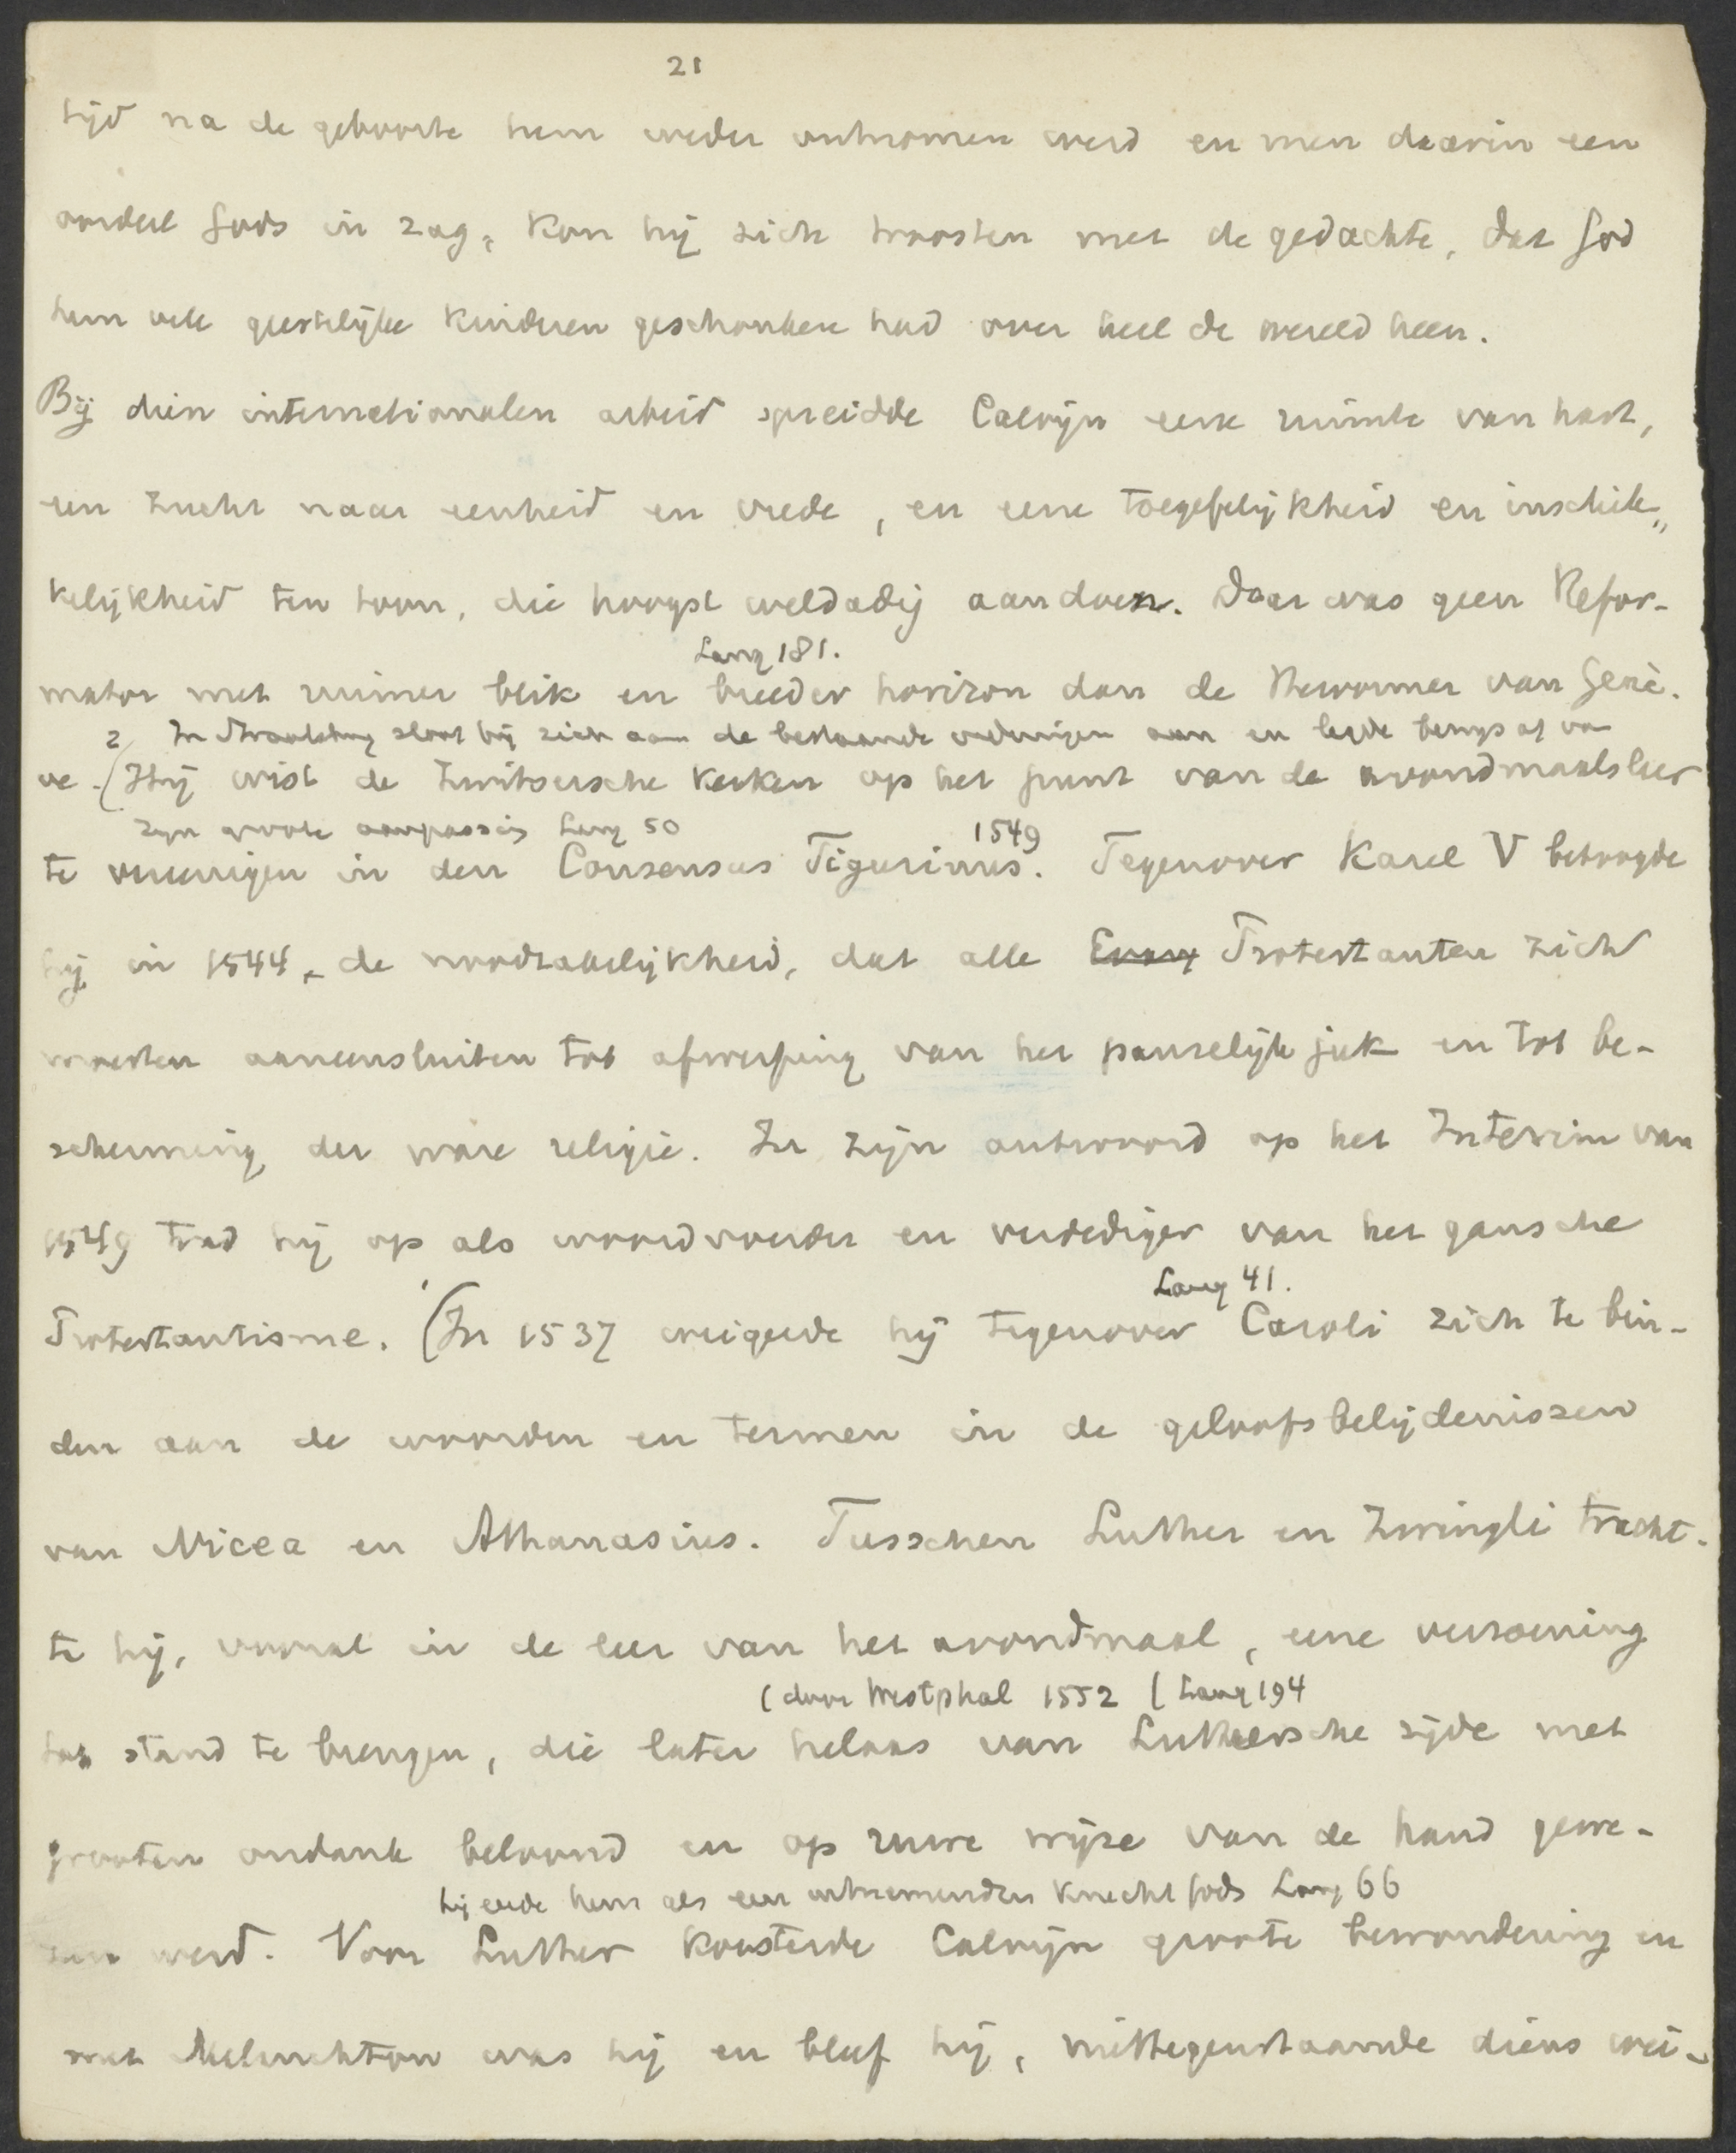 21
tijd na de geboorte hem weder ontnomen werd en men daarin een
oordeel Gods in zag, kon hij zich troosten met de gedachte, dat God
hem vele geestelijke kinderen geschonken had over heel de wereld heen.
Bij dien internationalen arbeid spreidde Calvijn eene ruimte van hart,
een zucht naar eenheid en vrede, en eene toegefelijkheid en inschik„
kelijkheid ten toon, die hoogst weldadig aandoen. Daar was geen Refor-
Lang 181.
mator met ruimer blik en breeder horizon dan de Hervormer van Genè-
2 In Straatsburg sloot hij zich aan de bestaande ordeningen aan en legde bewijs af van
ve. (Hij wist de Zwitsersche kerken op het punt van de avondmaalsleer
zijn groote aanpassing Lang 50 1549
te vereenigen in den Consensus Tigurinus. Tegenover Karel V betoogde
hij in 1544, de noodzakelijkheid, dat alle Evang Protestanten zich
moesten aaneensluiten tot afwerping van het pauselijk juk en tot be-
scherming der ware religie. In zijn antwoord op het Interim van
1549 trad hij op als woordvoerder en verdediger van het gansche
Lang 41.
Protestantisme. (In 1537 weigerde hij tegenover Caroli zich te bin-
den aan de woorden en termen in de geloofsbelijdenissen
van Nicea en Athanasius. Tusschen Luther en Zwingli tracht-
te hij, vooral in de leer van het avondmaal, eene verzoening
(door Westphal 1552 (Lang 194
tot stand te brengen, die later helaas van Luthersche zijde met
grooten ondank beloond en op ruwe wijze van de hand gewe-
hij eerde hem als een uitnemenden knecht Gods Lang 66
zen werd. Voor Luther koesterde Calvijn groote bewondering en
met Melanchton was hij en bleef hij, niettegenstaande diens wei-